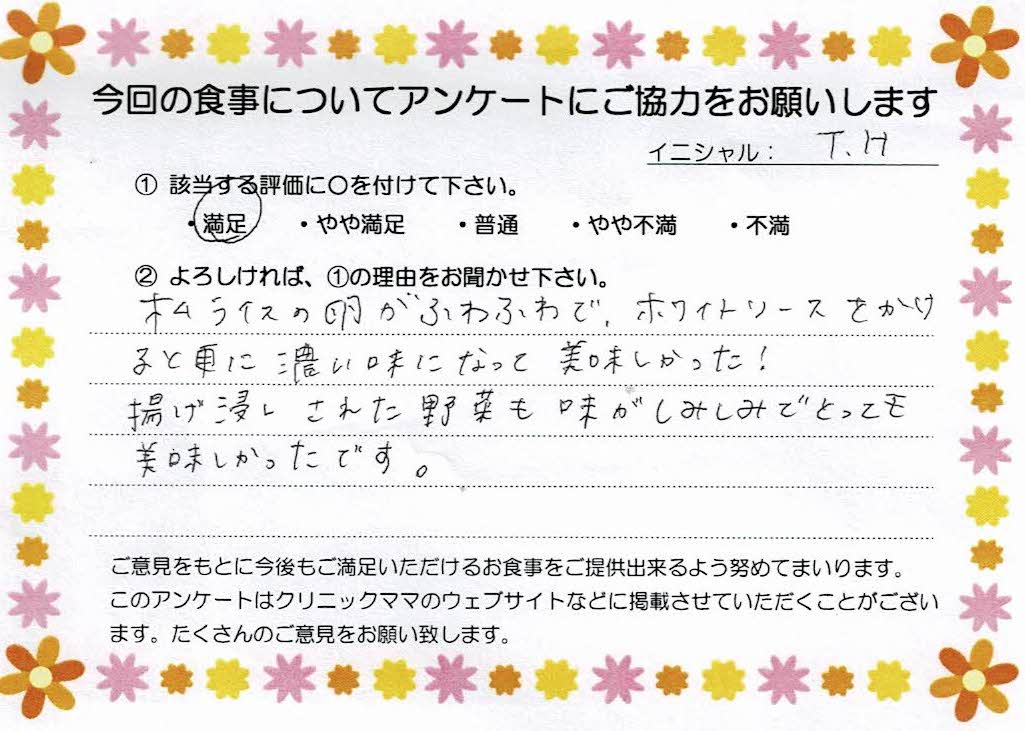 今回の食事についてアンケートにご協力をお願いします
イニシャル： T.H
① 該当する評価に○を付けて下さい。
・満足 ・やや満足 ・普通 ・やや不満 ・不満
② よろしければ、①の理由をお聞かせ下さい。
オムライスの卵がふわふわで、ホワイトソースをかけ
ると更に濃い味になって美味しかった！
揚げ浸しされた野菜も味がしみしみでとっても
美味しかったです。
ご意見をもとに今後もご満足いただけるお食事をご提供出来るよう努めてまいります。
このアンケートはクリニックママのウェブサイトなどに掲載させていただくことがござい
ます。たくさんのご意見をお願い致します。